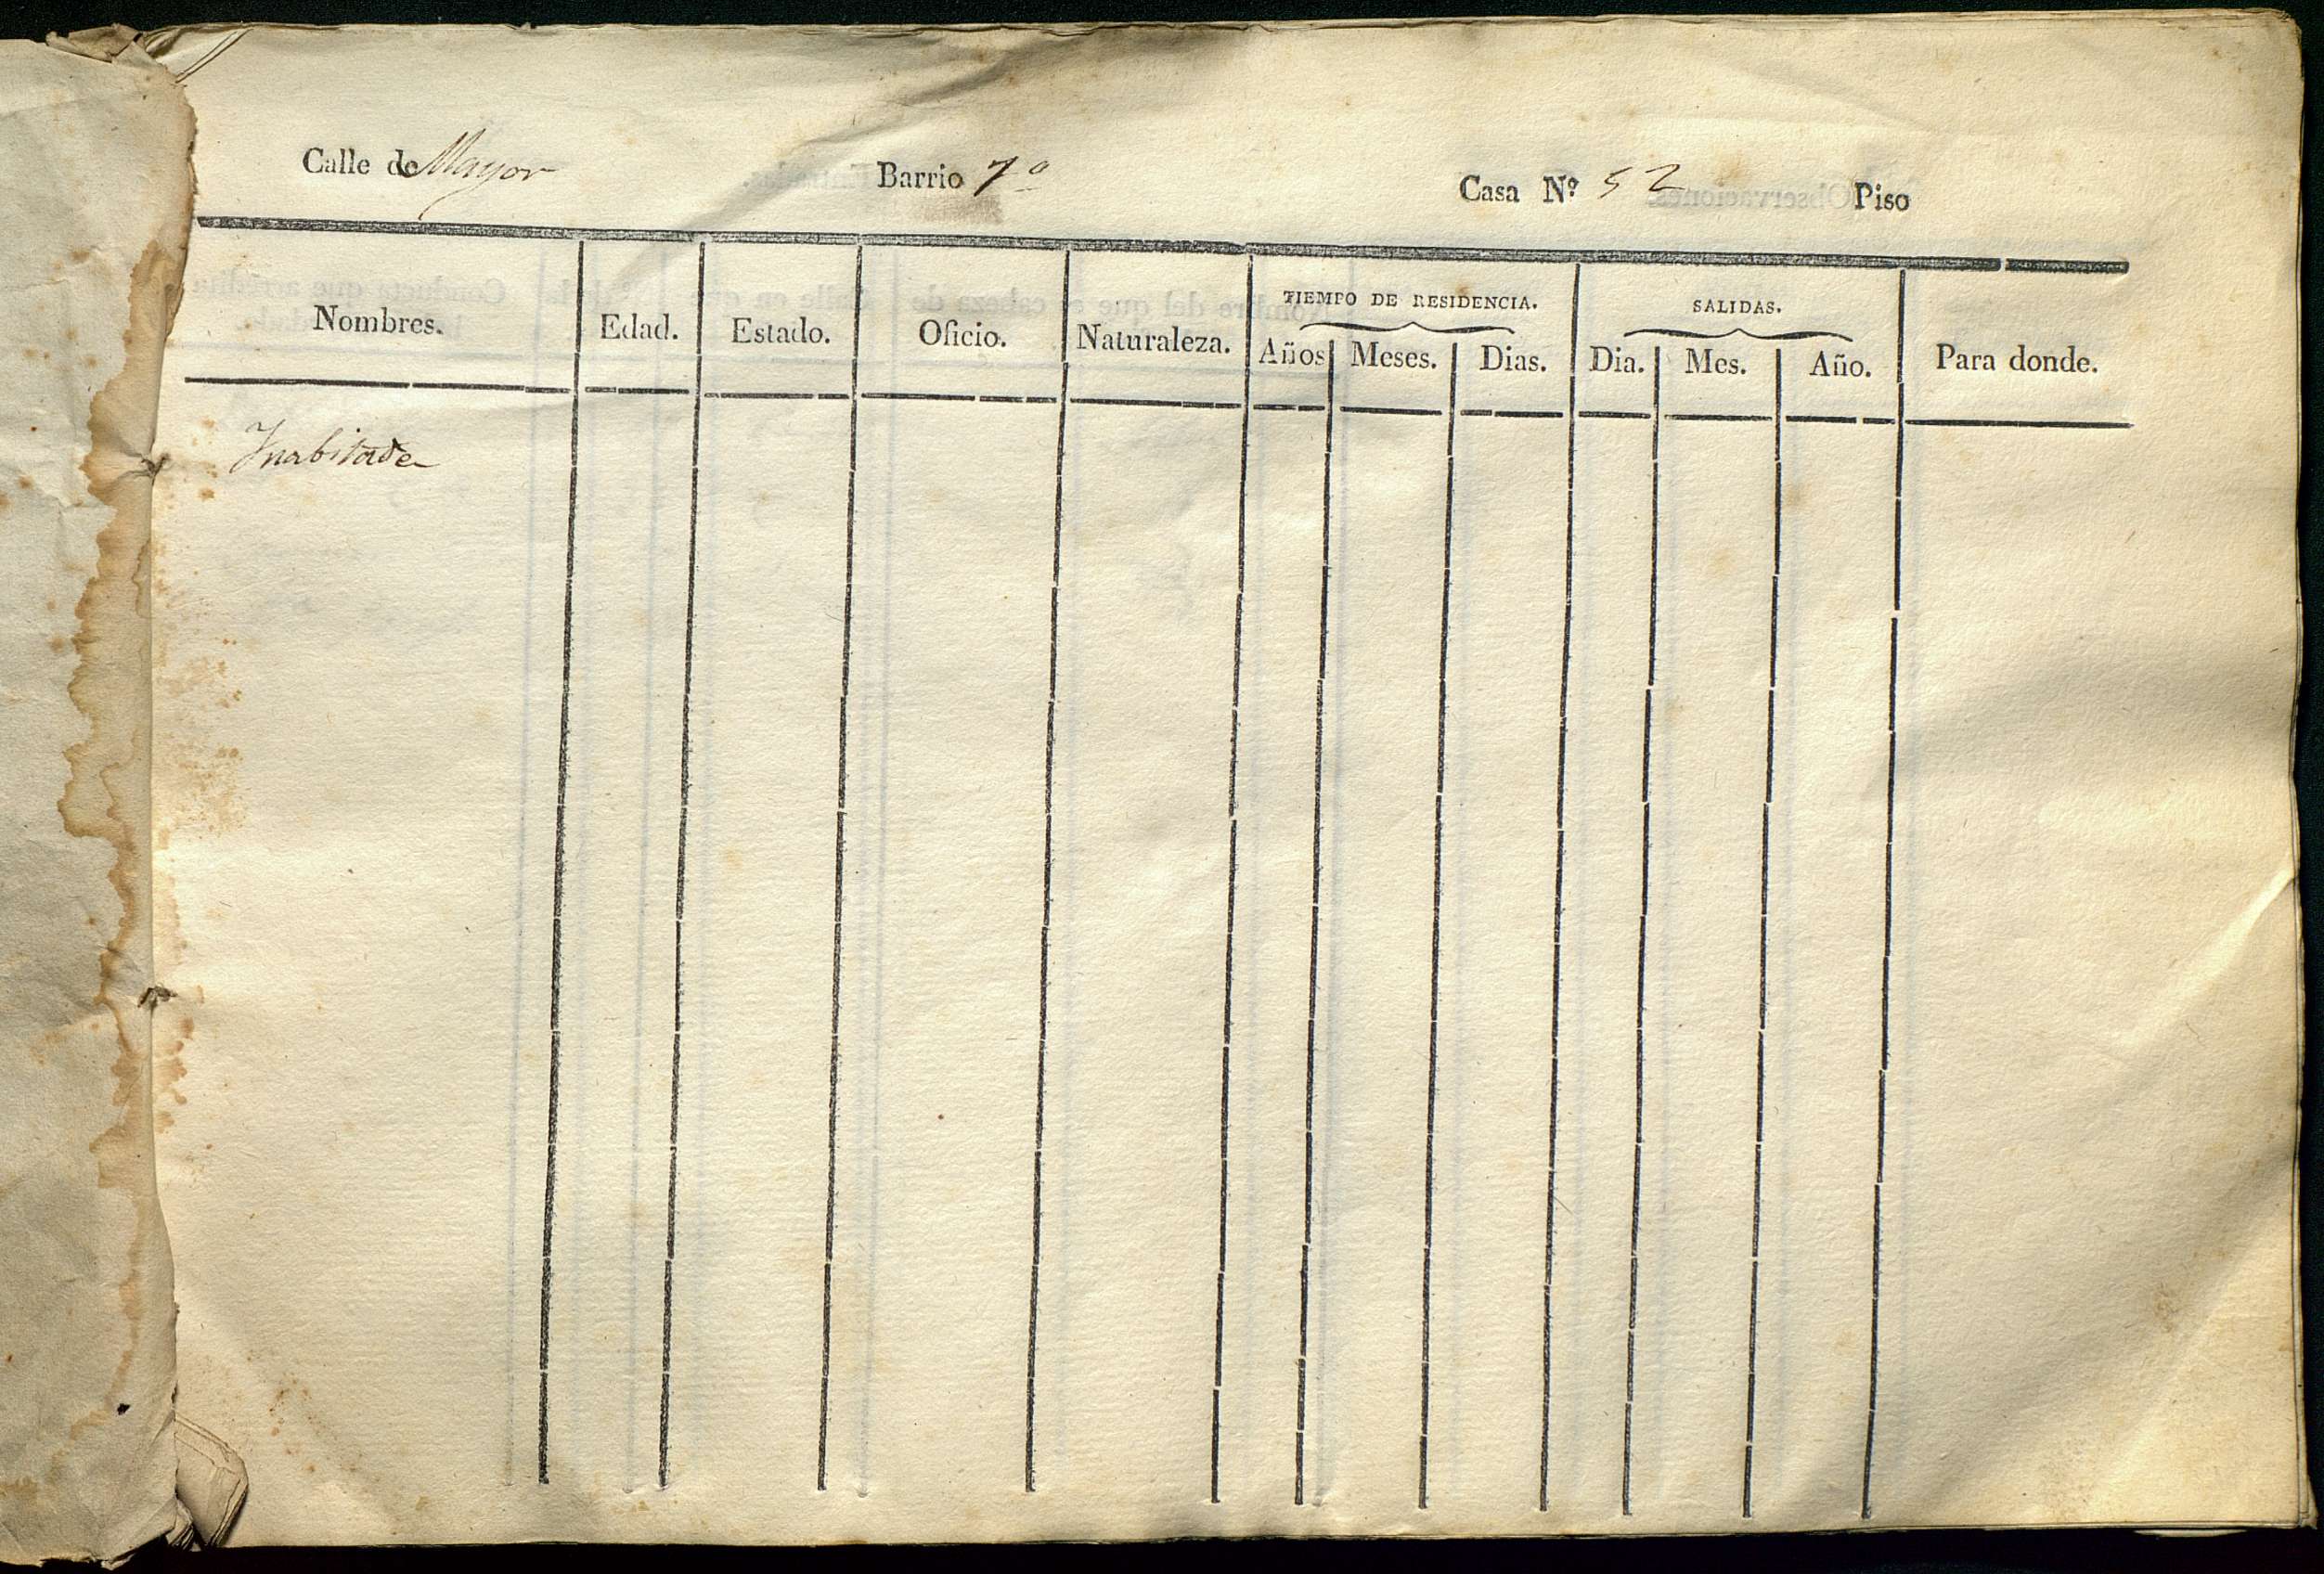 Calle de Mayor Barrio 7º Casa Nº 52 Piso
Nombres. Edad. Estado. Oficio. Naturaleza. TIEMPO DE RESIDENCIA. SALIDAS. Para donde.
Años Meses. Dias. Dia. Mes. Año.
Inabitada